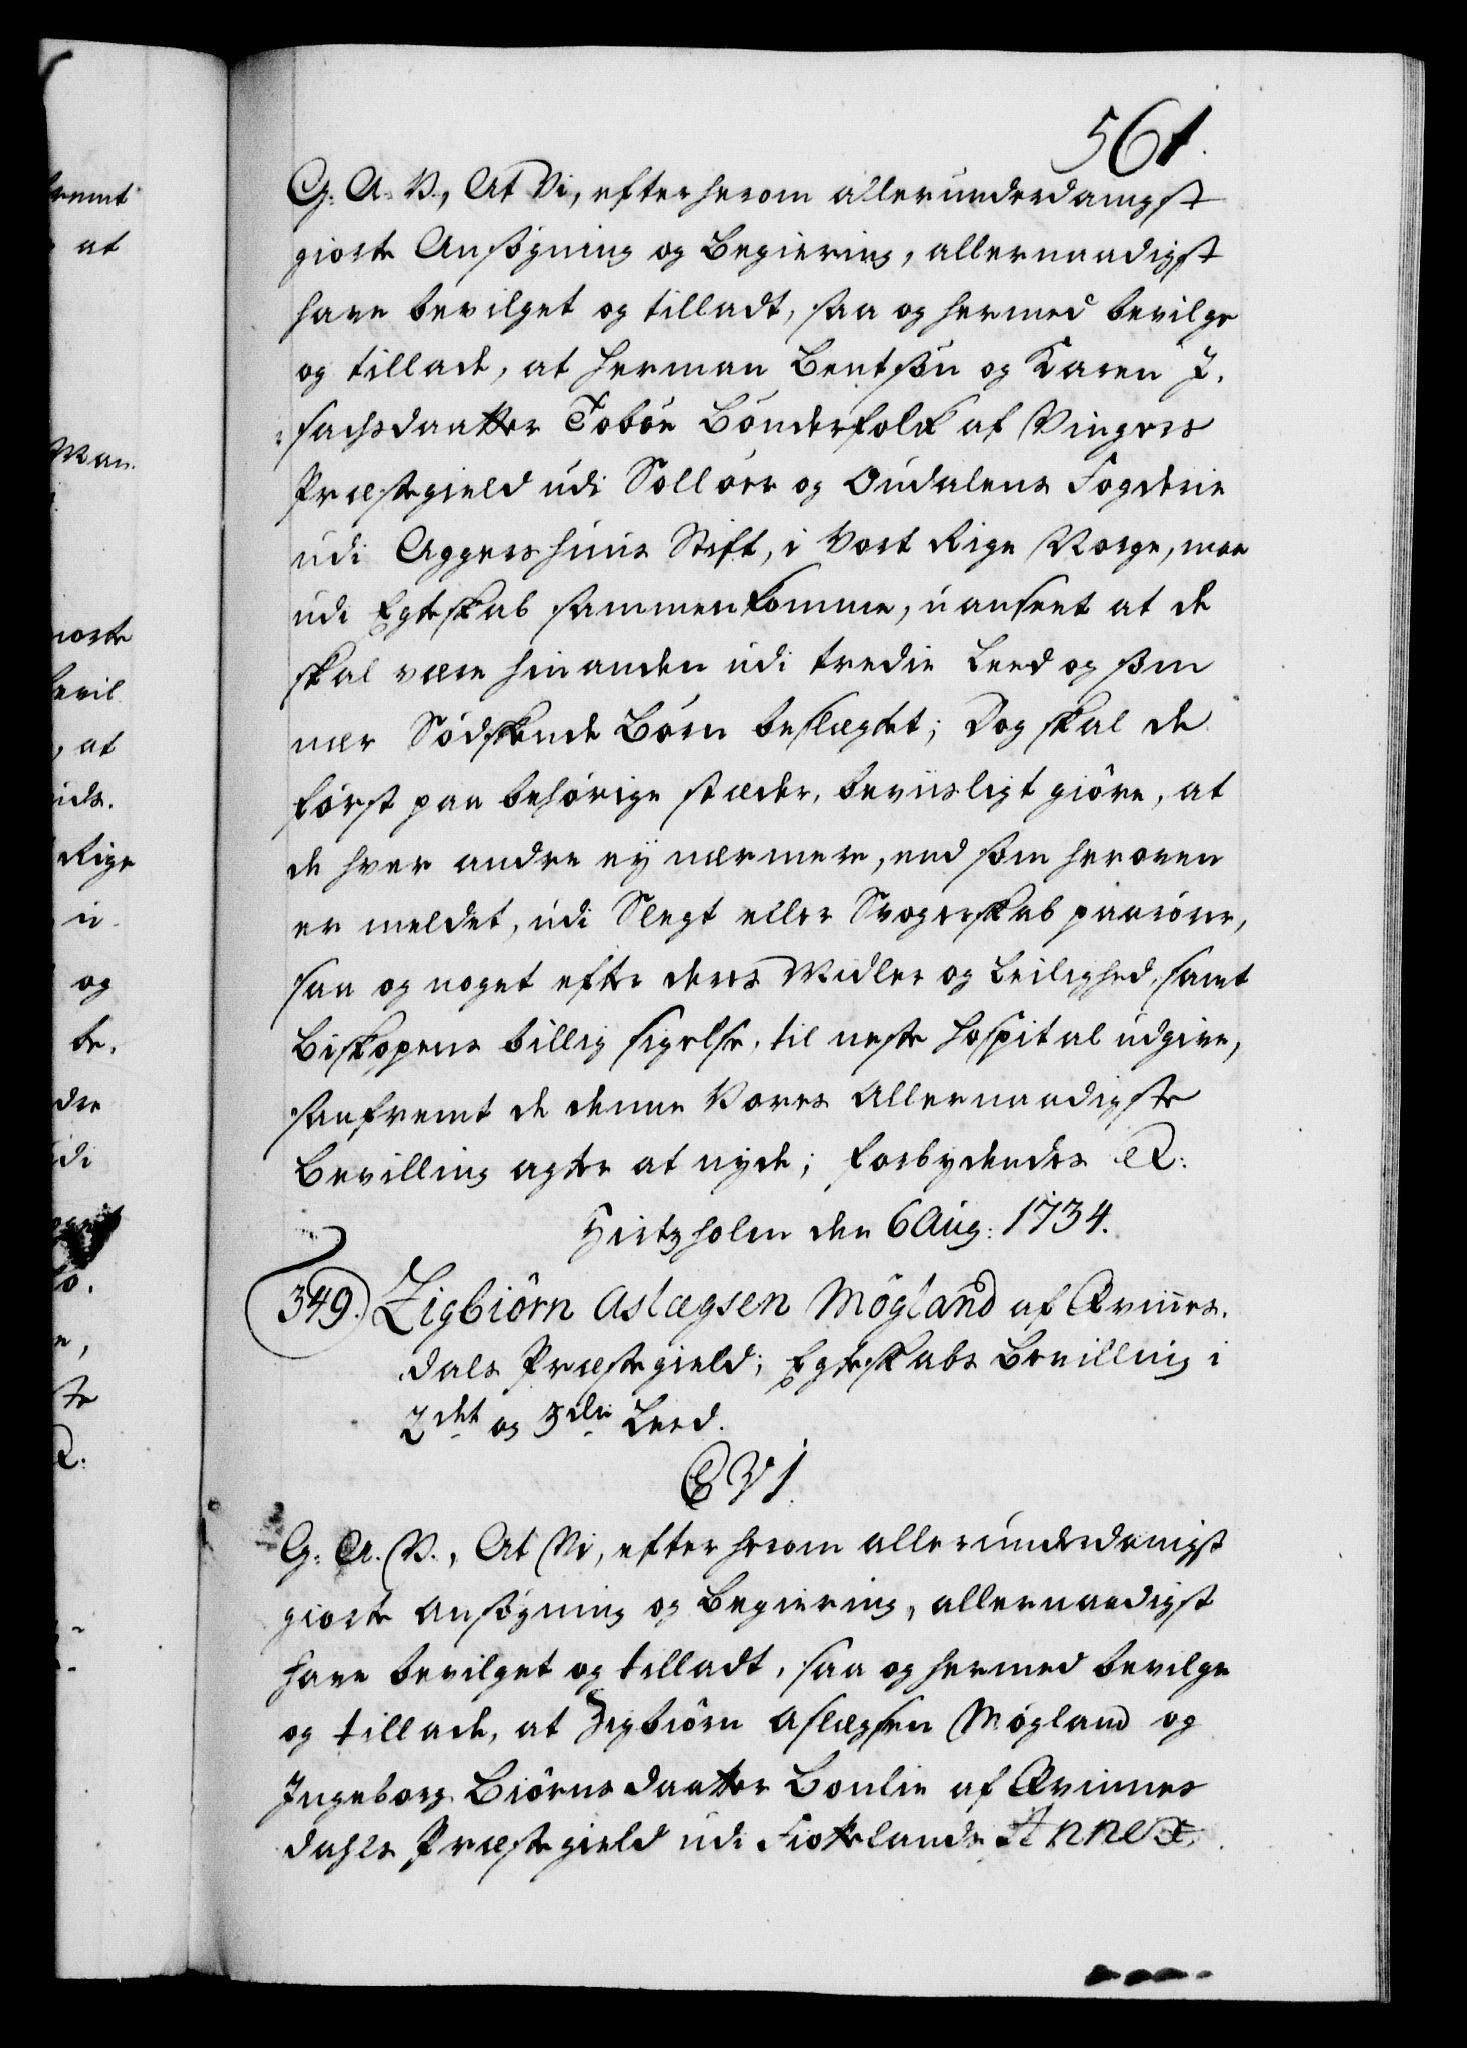 561.
G: A: V., At Vi, efter herom allerunderdanigst
giorte Ansøgning og Begiering, allernaadigst
have bevilget og tilladt, saa og hermed bevilge
og tillade, at Herman Bentssøn og Karen J.
sachsdaatter Tobøe Bønderfolk af Vingers
Præstegield udi Solløer og Oudalens Fogderie
udi Aggershuus Stift, i Vort Rige Norge, maa
udi Egteskab sammenkomme, uanseet at de
skal være hinanden udi tredie Leed og som
nær Sødskende Børn beslægtet; Dog skal de
først paa behørige stæder, beviisligt giøre, at
de hver andre ey nærmere, end som heroven
er meldet, udi Slegt eller Svogerskab paarører,
saa og noget efter deres Midler og Leilighed, samt
Biskopens billig sigelse, til neste Hospital udgive,
saafremt de denne Vores Allernaadigste
Bevilling agter at nyde; Forbydendes R:
Hirtzholm den 6 Aug: 1734.
349. Zigbiörn Aslægsen Mögland af Qvinnes.
dals Præstegield; Egteskabs Bevilling i
2det og 3die Leed.
C VI.
G: A. V., At Vi, efter herom allerunderdanigst
giorte Ansøgning og Begiering, allernaadigst
have bevilget og tilladt, saa og hermed bevilge
og tillade, at Zigbiørn Aslægsen Møgland og
Ingeborg Biørnsdaatter Bonlie af Qvinnes
dahls Præstegield udi Fiotelands Annex,